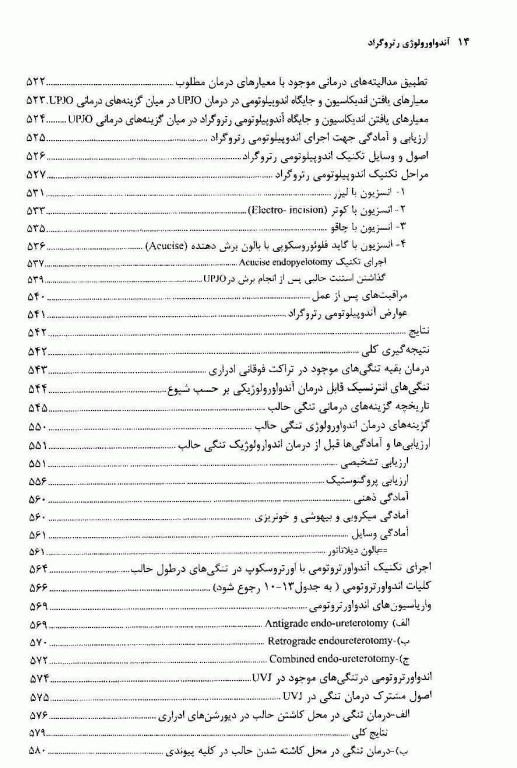 ۱۴ آندواورولوژی رتروگراد
تطبیق مدالیته‌های درمانی موجود با معیارهای درمان مطلوب ۵۲۲
معیارهای یافتن اندیکاسیون و جایگاه اندوپیلوتومی در درمان UPJO در میان گزینه‌های درمانی UPJO. ۵۲۳
معیارهای یافتن اندیکاسیون و جایگاه آندوپیلوتومی رتروگراد در میان گزینه‌های درمانی UPJO ۵۲۴
ارزیابی و آمادگی جهت اجرای اندوپیلوتومی رتروگراد ۵۲۵
اصول و وسایل تکنیک اندوپیلوتومی رتروگراد ۵۲۶
مراحل تکنیک اندوپیلوتومی رتروگراد ۵۲۷
۱- انسزیون با لیزر ۵۳۱
۲- انسزیون با کوتر (Electro- incision) ۵۳۳
۳- انسزیون با چاقو ۵۳۵
۴- انسزیون با گاید فلوئوروسکوپی با بالون برش دهنده (Acucise) ۵۳۶
اجرای تکنیک Acucise endopyelotomy ۵۳۷
گذاشتن استنت حالبی پس از انجام برش در UPJO ۵۳۹
مراقبت‌های پس از عمل ۵۴۰
عوارض آندوپیلوتومی رتروگراد ۵۴۱
نتایج ۵۴۲
نتیجه‌گیری کلی ۵۴۲
درمان بقیه تنگی‌های موجود در تراکت فوقانی ادراری ۵۴۳
تنگی‌های انترنسیک قابل درمان آندواورولوژیکی بر حسب شیوع ۵۴۴
تاریخچه گزینه‌های درمانی تنگی حالب ۵۴۵
گزینه‌های درمان اندواورولوژی تنگی حالب ۵۵۰
ارزیابی‌ها و آمادگی‌ها قبل از درمان اندوارولوژیک تنگی حالب ۵۵۱
ارزیابی تشخیصی ۵۵۱
ارزیابی پروگنوستیک ۵۵۶
آمادگی ذهنی ۵۶۰
آمادگی میکروبی و بیهوشی و خونریزی ۵۶۰
آمادگی وسایل ۵۶۱
==بالون دیلاتاتور ۵۶۱
اجرای تکنیک آندواورتروتومی با اورتروسکوپ در تنگی‌های درطول حالب ۵۶۴
کلیات اندواورتروتومی ( به جدول۱۳-۱۰ رجوع شود) ۵۶۶
واریاسیون‌های اندواورتروتومی ۵۶۹
الف) Antigrade endo-ureterotomy ۵۶۹
ب)-Retrograde endoureterotomy ۵۷۰
ج)-Combined endo-ureterotomy ۵۷۲
اندواورتروتومی درتنگی‌های موجود در UVJ ۵۷۴
اصول مشترک درمان تنگی در UVJ ۵۷۵
الف-درمان تنگی در محل کاشتن حالب در دیورشن‌های ادراری ۵۷۶
نتایج کلی ۵۷۹
ب)-درمان تنگی در محل کاشته شدن حالب در کلیه پیوندی ۵۸۰